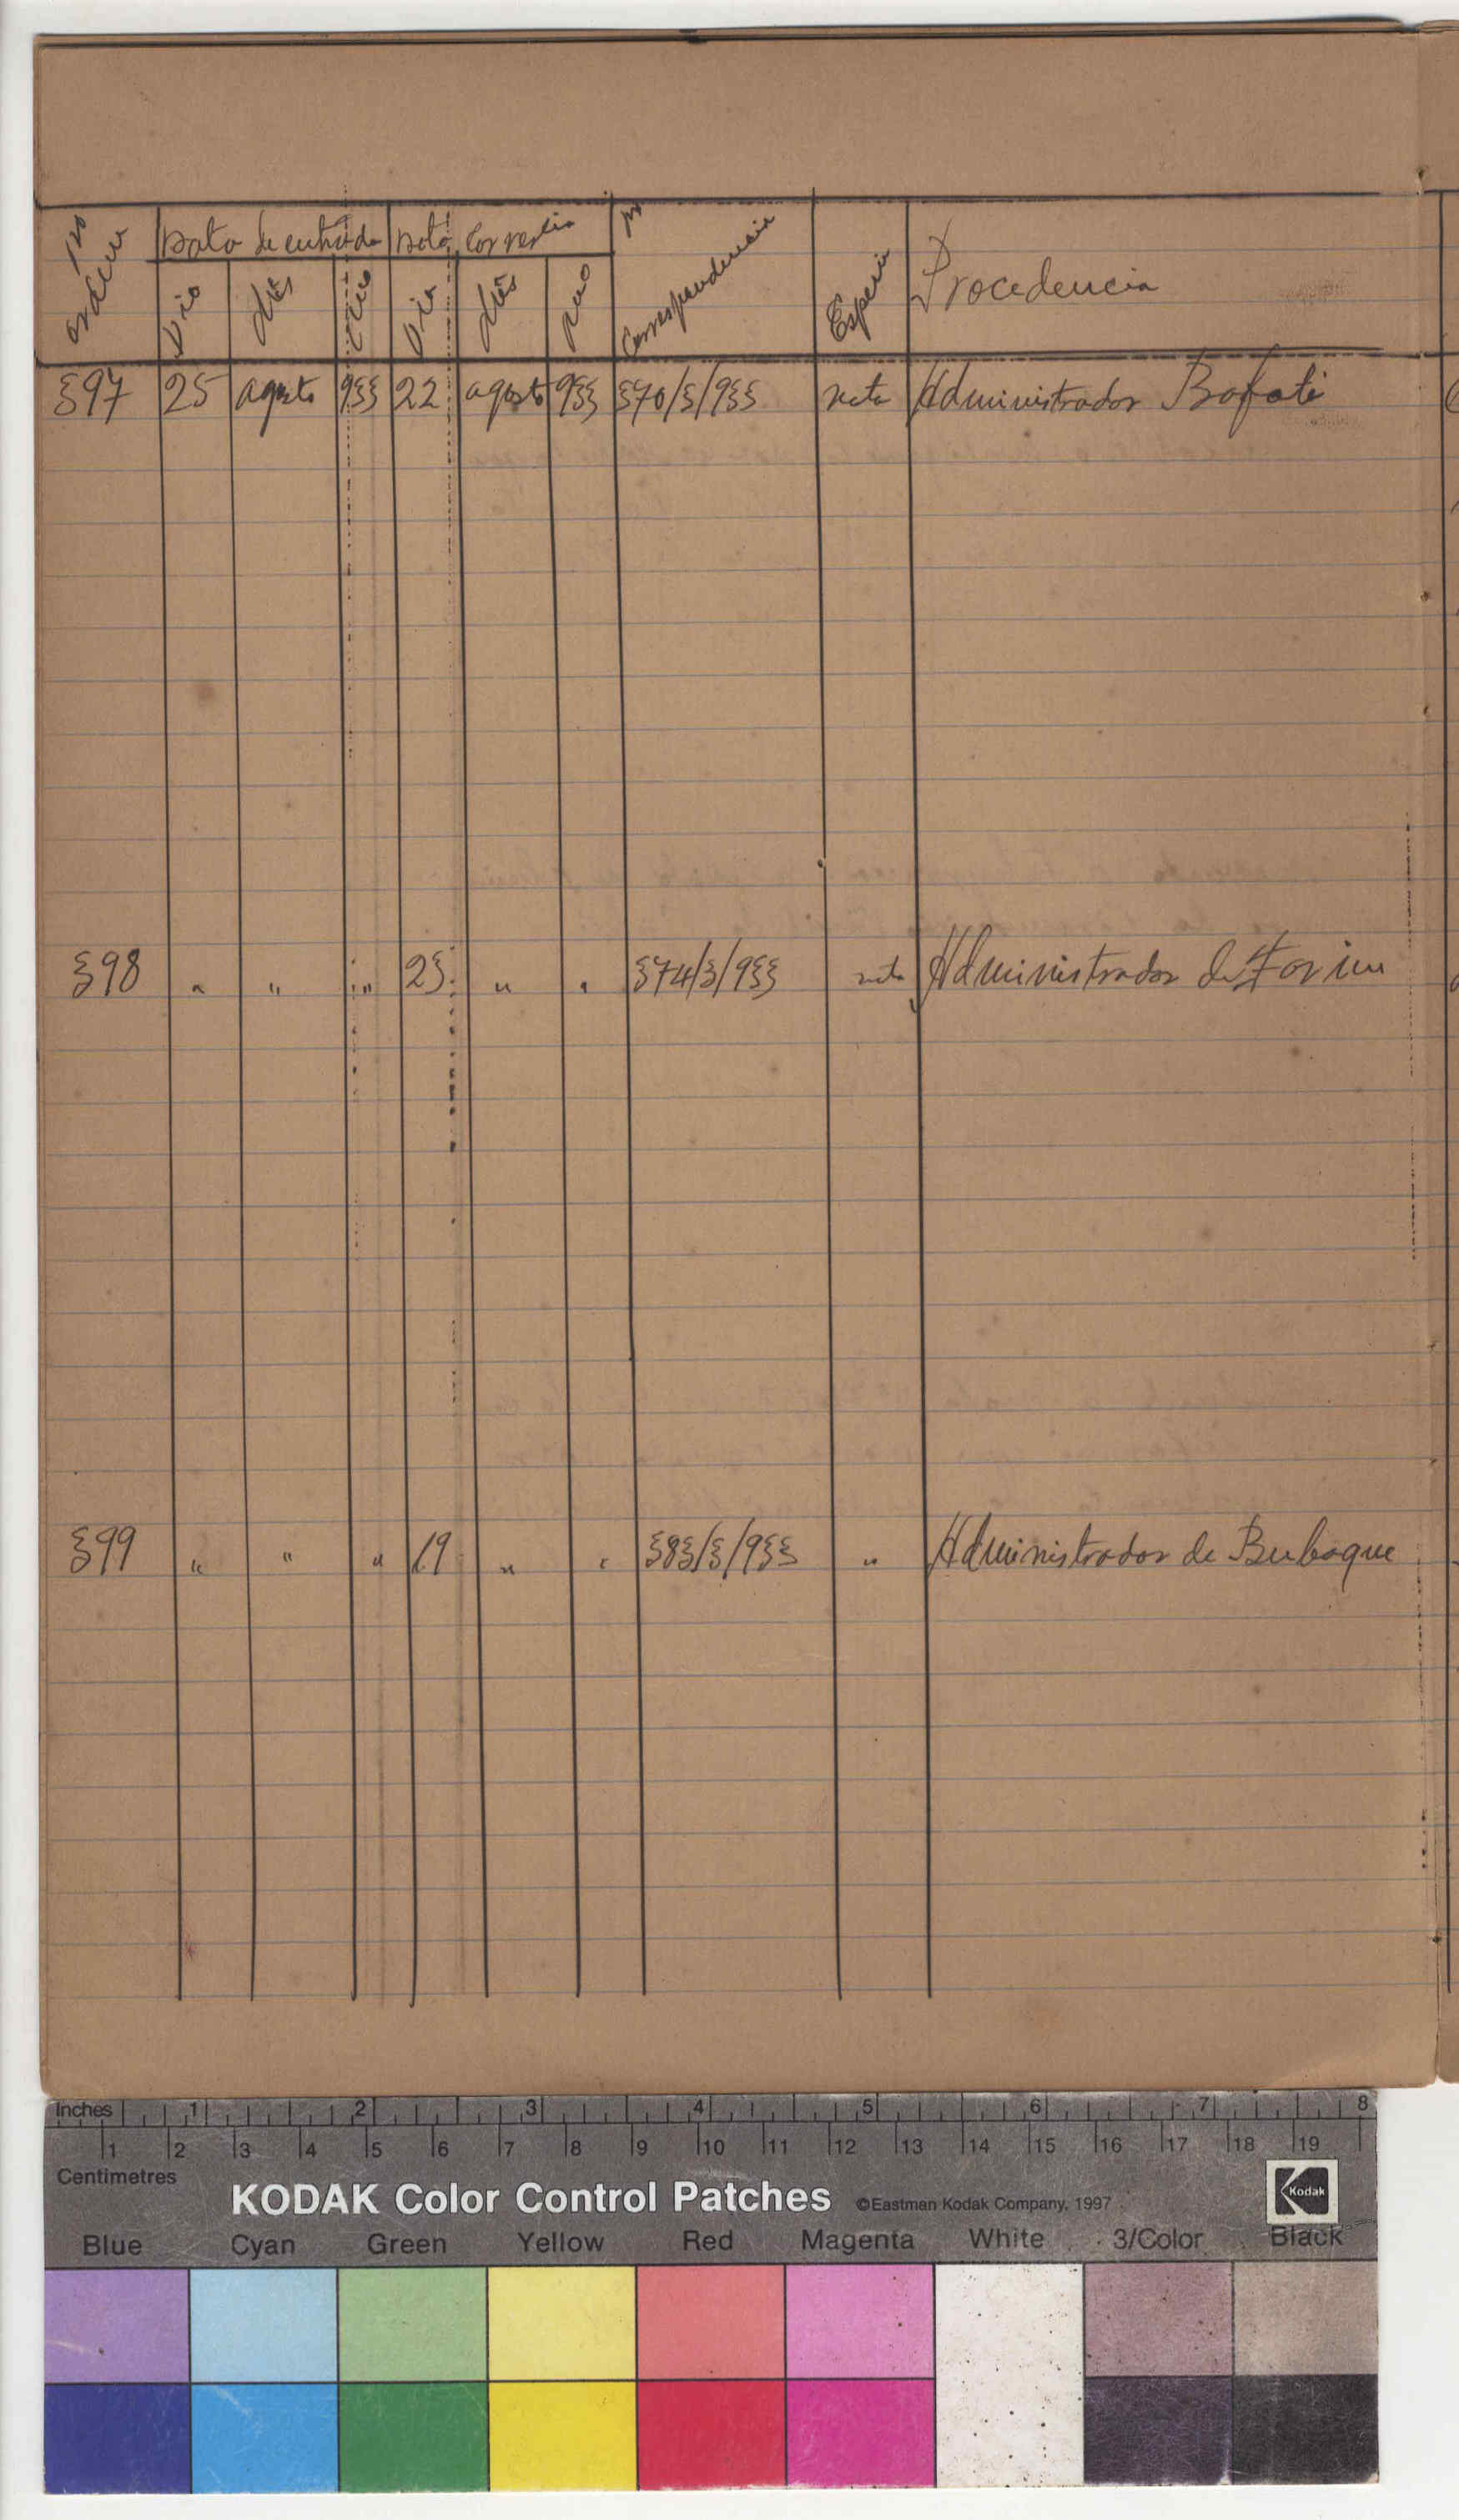 Nº ordem Data de entrada Data Corresia Nº Correspondencia Especie Procedencia
Dia Mês Ano Dia Mês Ano
397 25 agosto 933 22 agosto 933 370/3/933 nota Administrador Bafatá
398 " " " 23 " " 374/3/933 nota Administrador de Farim
399 " " " 19 " " 383/3/933 " Administrador de Bubaque
Inches 1 2 3 4 5 6 7 8
1 2 3 4 5 6 7 8 9 10 11 12 13 14 15 16 17 18 19
Centimetres
KODAK Color Control Patches ©Eastman Kodak Company, 1997 Kodak
Blue Cyan Green Yellow Red Magenta White 3/Color Black